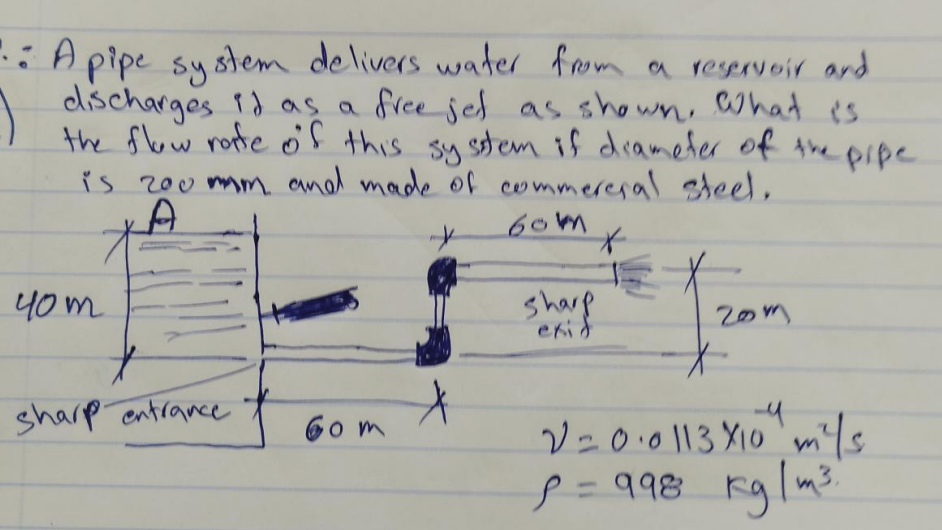 A pipe system delivers water from a reservoir and
discharges it as a free jet as shown. What is
the flow rate of this system if diameter of the pipe
is 200 mm and made of commercial steel.
A
60m
40m
sharp
exit
20m
sharp entrance
60 m
ν = 0.0113 X10⁻⁴ m²/s
ρ = 998 kg/m³.